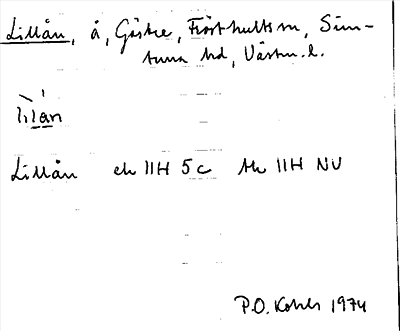 Lillån, å, Gästre, Frösthults sn, Sim-
tuna hd, Västm. l.
lilån
Lillån ek 11H 5c tk 11H NV
P.O. 1974